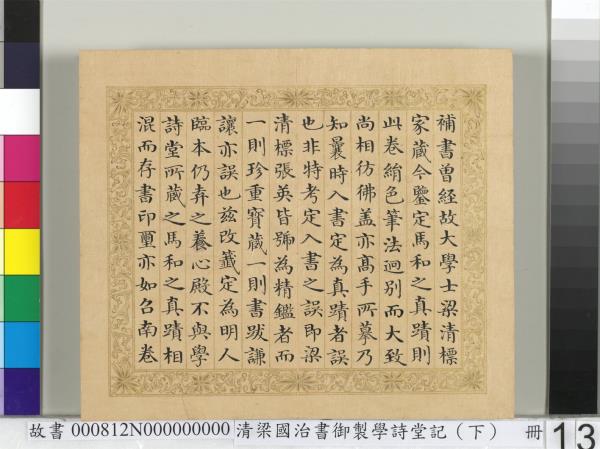 補書曾經故大學士梁清標
家蔵今鑒定馬和之真蹟則
此卷絹色筆法迥別而大致
尚相彷彿盖亦髙手所摹乃
知曩時入書定為真蹟者誤
也非特考定入書之誤即梁
清標張英皆號為精鑑者而
一則珍重寳蔵一則書跋謙
讓亦誤也茲改籤定為明人
臨本仍弆之養心殿不與學
詩堂所蔵之馬和之真蹟相
混而存書印璽亦如召南卷
故書 000812N000000000 清梁國治書御製學詩堂記（下） 冊 13